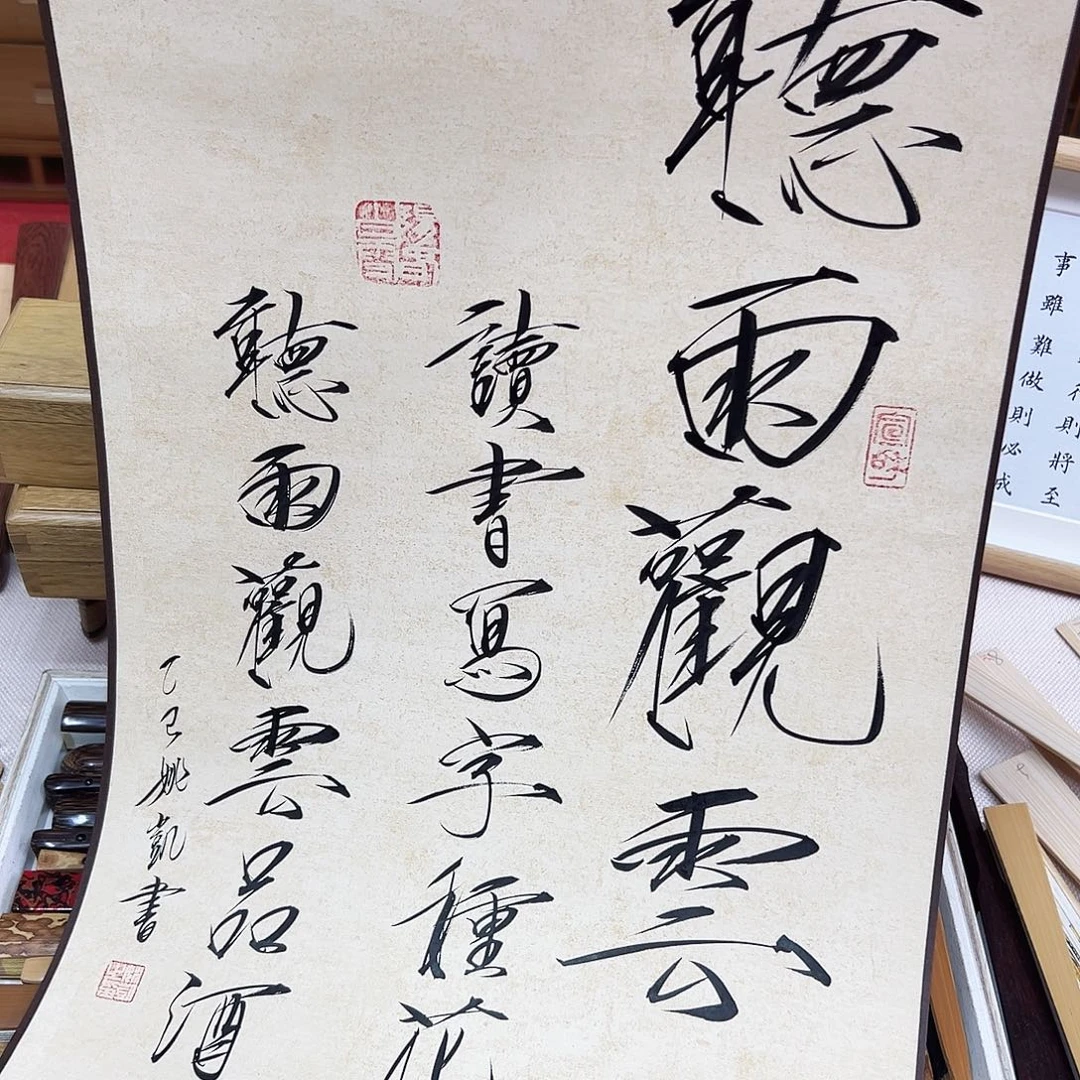 聽雨觀雲
讀書寫字種花
聽雨觀雲品酒
乙巳姚凱書
事雖難做則必成
則將至